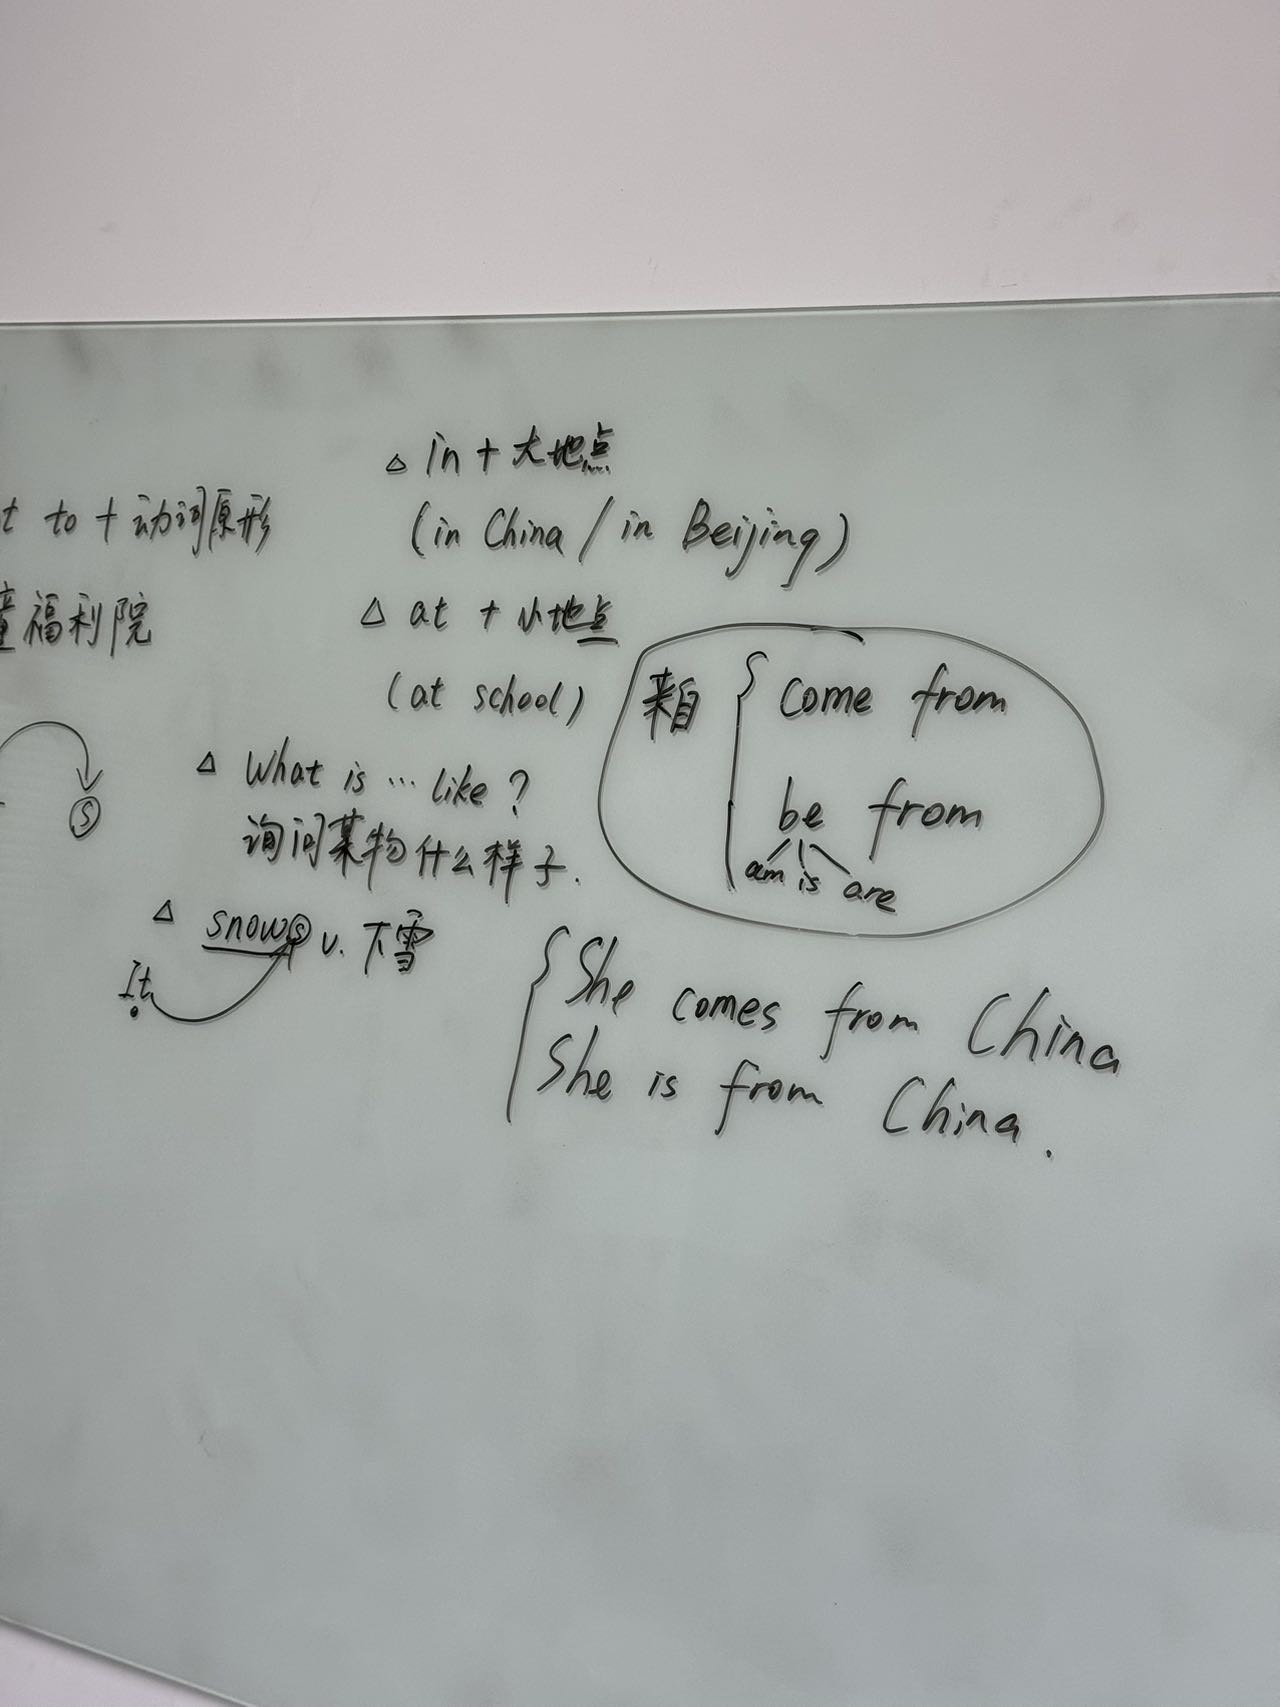 △ in + 大地点
t to + 动词原形
(in China / in Beijing)
童福利院
△ at + 小地点
(at school)
来自 { come from
be from
am is are
△ What is … like ?
询问某物什么样子.
Ⓢ
△ snowⓢ v. 下雪
It
{ She comes from China
She is from China.